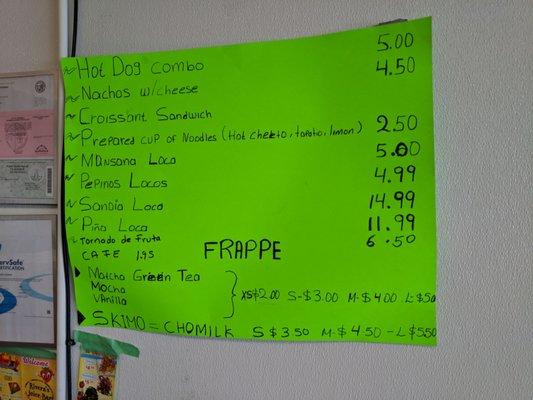 ~ Hot Dog combo 5.00
~ Nachos w/cheese 4.50
~ Croissant Sandwich
~ Prepared cup of Noodles (Hot cheeto, tapatio, limon) 2.50
~ Mansana Loca 5.00
~ Pepinos Locos 4.99
~ Sandia Loca 14.99
~ Piña Loca 11.99
~ Tornado de fruta 6.50
CAFE 1.95
FRAPPE
Matcha Green Tea
Mocha
Vanilla
XS$2.00 S-$3.00 M-$4.00 L-$50
SKIMO = CHOMILK S $3.50 M-$4.50-L$5.50
ServSafe
CERTIFICATION
Welcome
Rivera's
Juice Bar